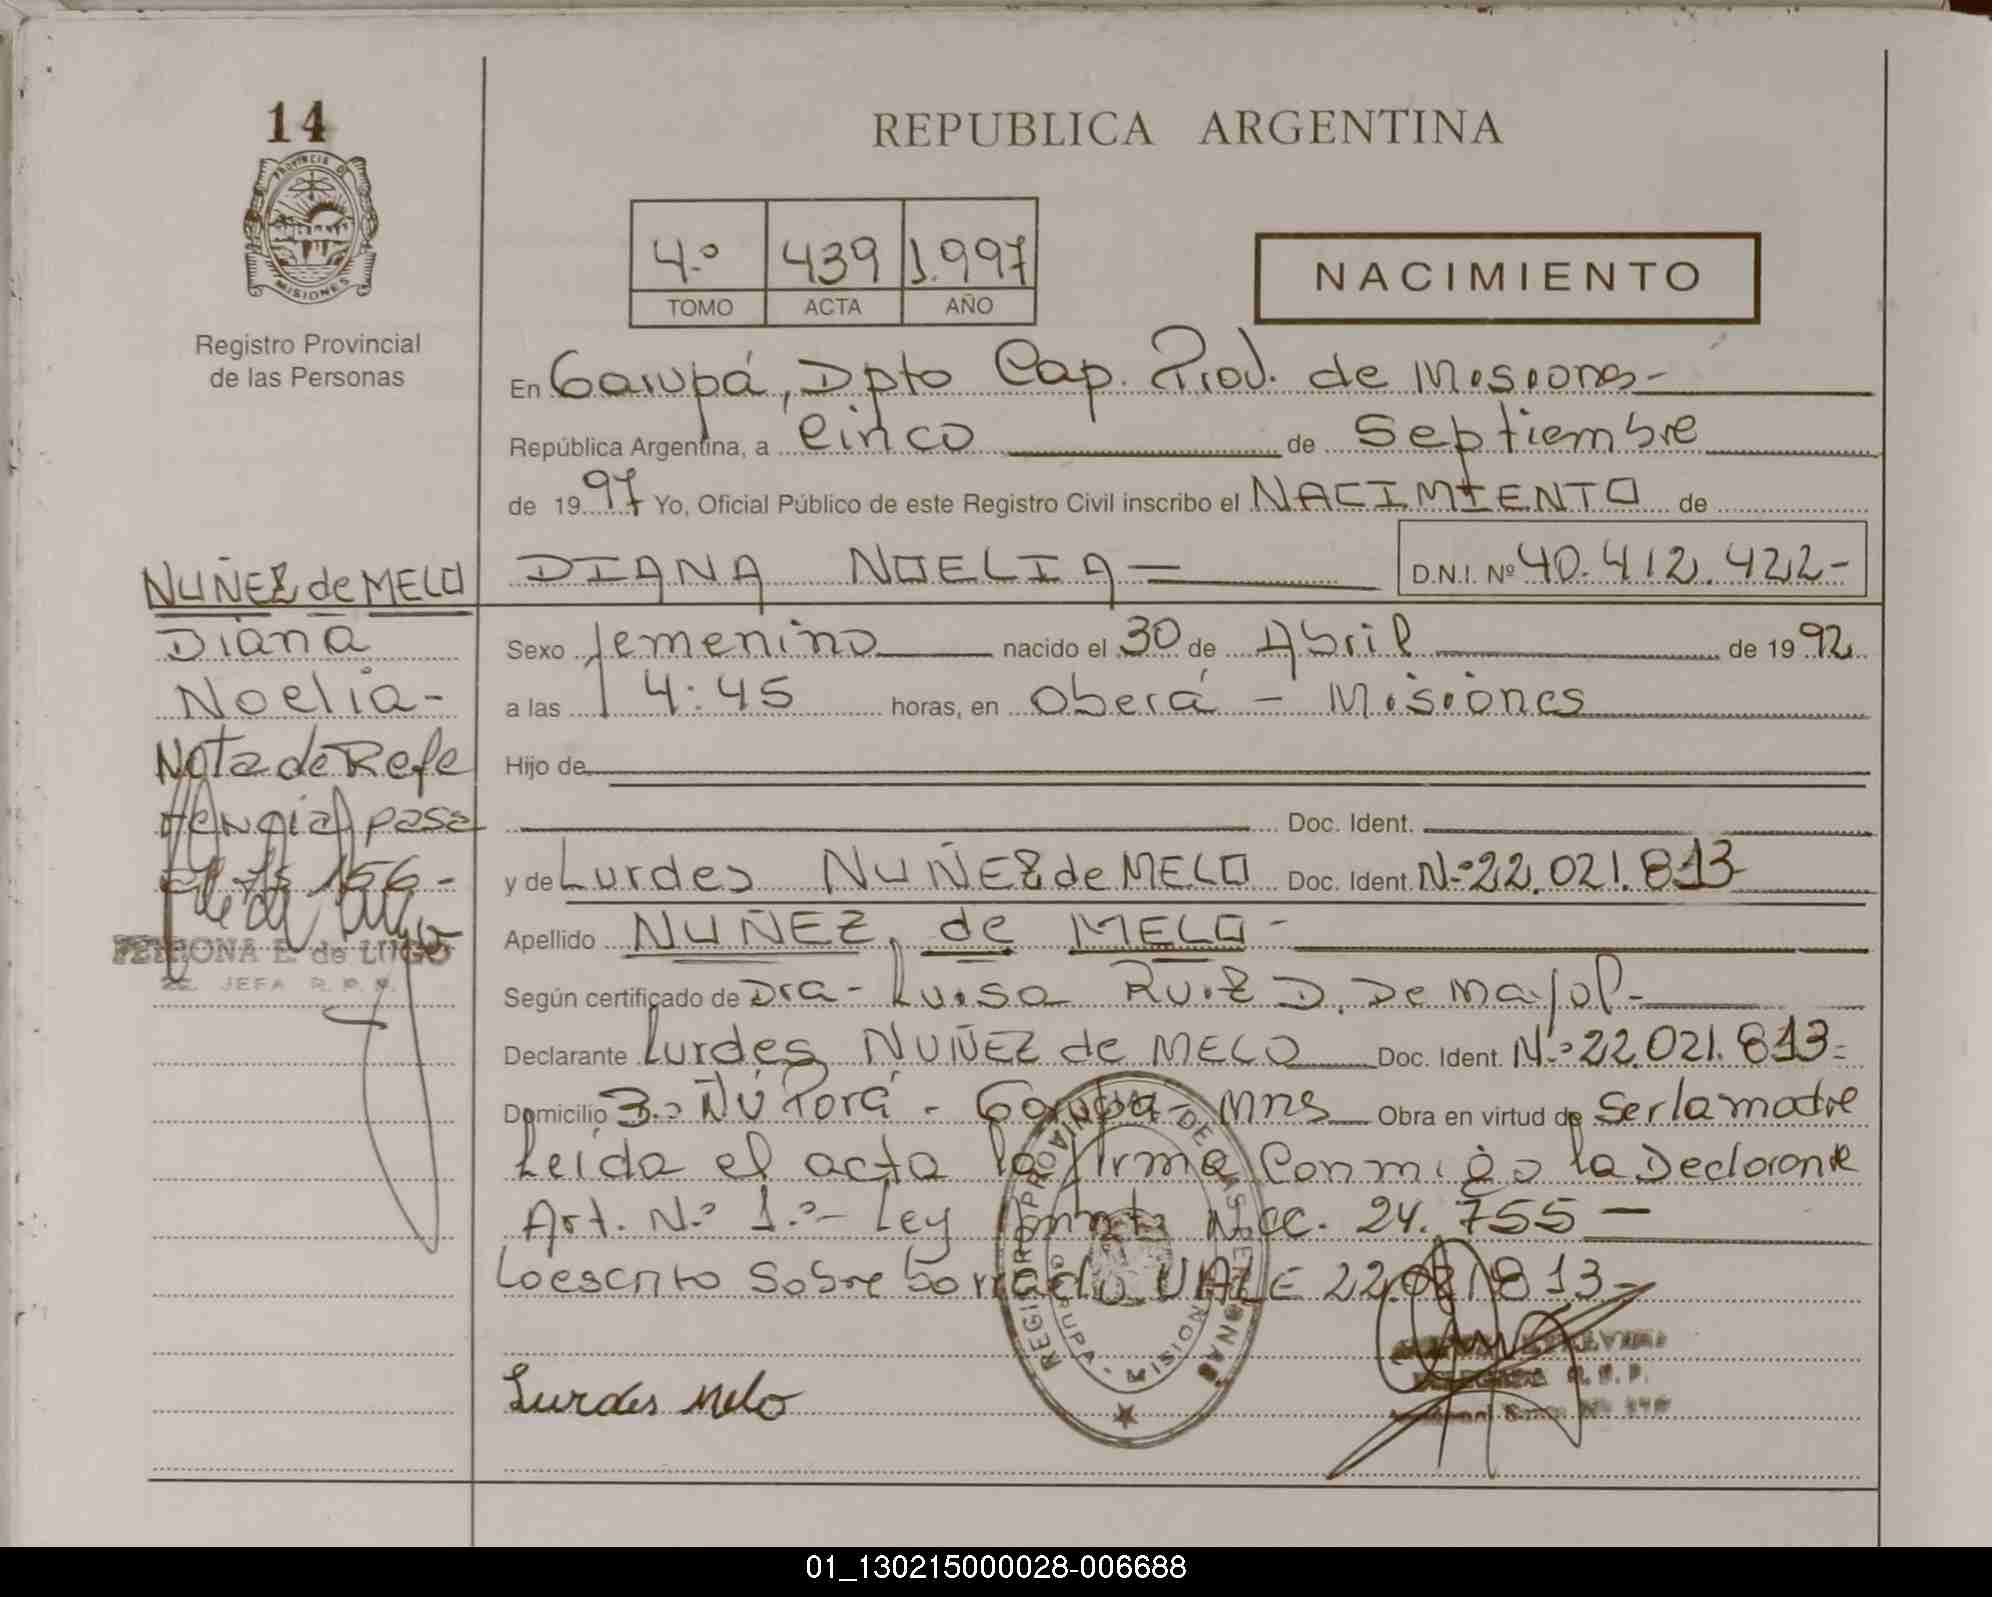 14
REPUBLICA ARGENTINA
PROVINCIA DE
MISIONES
Registro Provincial
de las Personas
4.º 439 1.997
TOMO ACTA AÑO
NACIMIENTO
En Garupá, Dpto Cap. Prov. de Misiones-
República Argentina, a Cinco de Septiembre
de 1997 Yo, Oficial Público de este Registro Civil inscribo el NACIMIENTO de
DIANA NOELIA — D.N.I. Nº 40.412.422-
Sexo femenino nacido el 30 de Abril de 1992
a las 4:45 horas, en Oberá - Misiones
Hijo de
Doc. Ident.
y de Lurdes NUÑEZ de MELO Doc. Ident. N.º 22.021.813-
Apellido NUÑEZ de MELO-
Según certificado de Dra- Luisa Ruiz D. De Mayol-
Declarante Lurdes NUÑEZ de MELO Doc. Ident. N.º 22.021.813-
Domicilio B.º Ñú Porá - Garupá - Mns Obra en virtud de Ser la madre
Leida el acta la firma Conmigo la Declarante
Art. N.º 1.º- Ley Nac. 24.755 —
Lo escrito Sobre borrado VALE 22.021.813-
Lurdes Melo
NUÑEZ de MELO
Diana
Noelia-
Nota de Refe
rencia pasa
al Fs 156-
PETRONA E. de LUGO
JEFA R. P. P.
REGISTRO PROVINCIAL DE LAS PERSONAS
GARUPA - MISIONES
R. P. P.
01_130215000028-006688